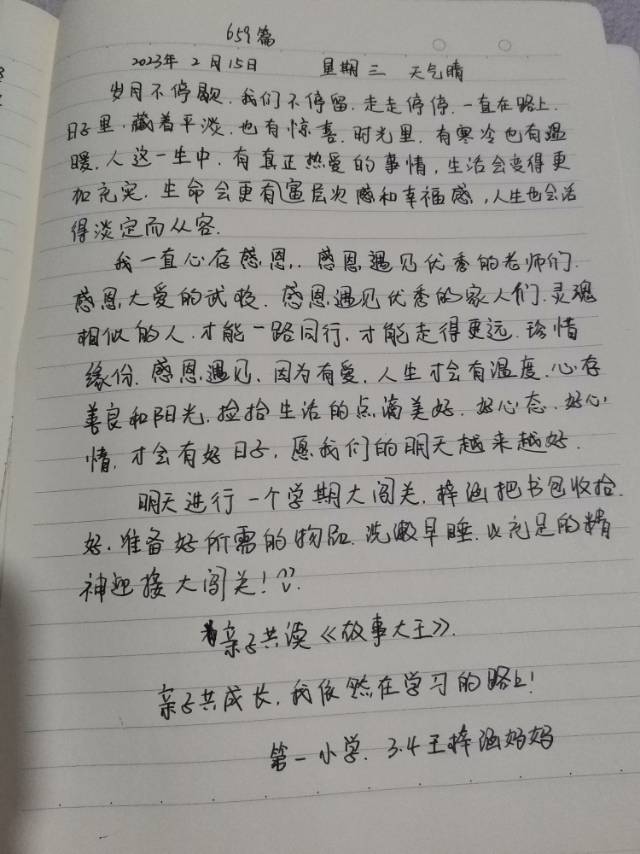 659篇
2023年 2月15日 星期三 天气晴
岁月不停歇.我们不停留.走走停停.一直在路上.
日子里.藏着平淡.也有惊喜.时光里.有寒冷也有温
暖.人这一生中.有真正热爱的事情,生活会变得更
加充实.生命会更有富层次感和幸福感,人生也会活
得淡定而从容.
我一直心存感恩..感恩遇见优秀的老师们.
感恩大爱的试验.感恩遇见优秀的家人们.灵魂
相似的人.才能一路同行,才能走得更远.珍惜
缘份.感恩遇见.因为有爱.人生才会有温度.心存
善良和阳光.捡拾生活的点滴美好.好心态.好心
情,才会有好日子,愿我们的明天越来越好.
明天进行一个学期大闯关.梓涵把书包收拾
好.准备好所需的物品.洗漱早睡.以充足的精
神迎接大闯关!
亲子共读《故事大王》.
亲子共成长,我依然在学习的路上!
第一小学.3.4王梓涵妈妈